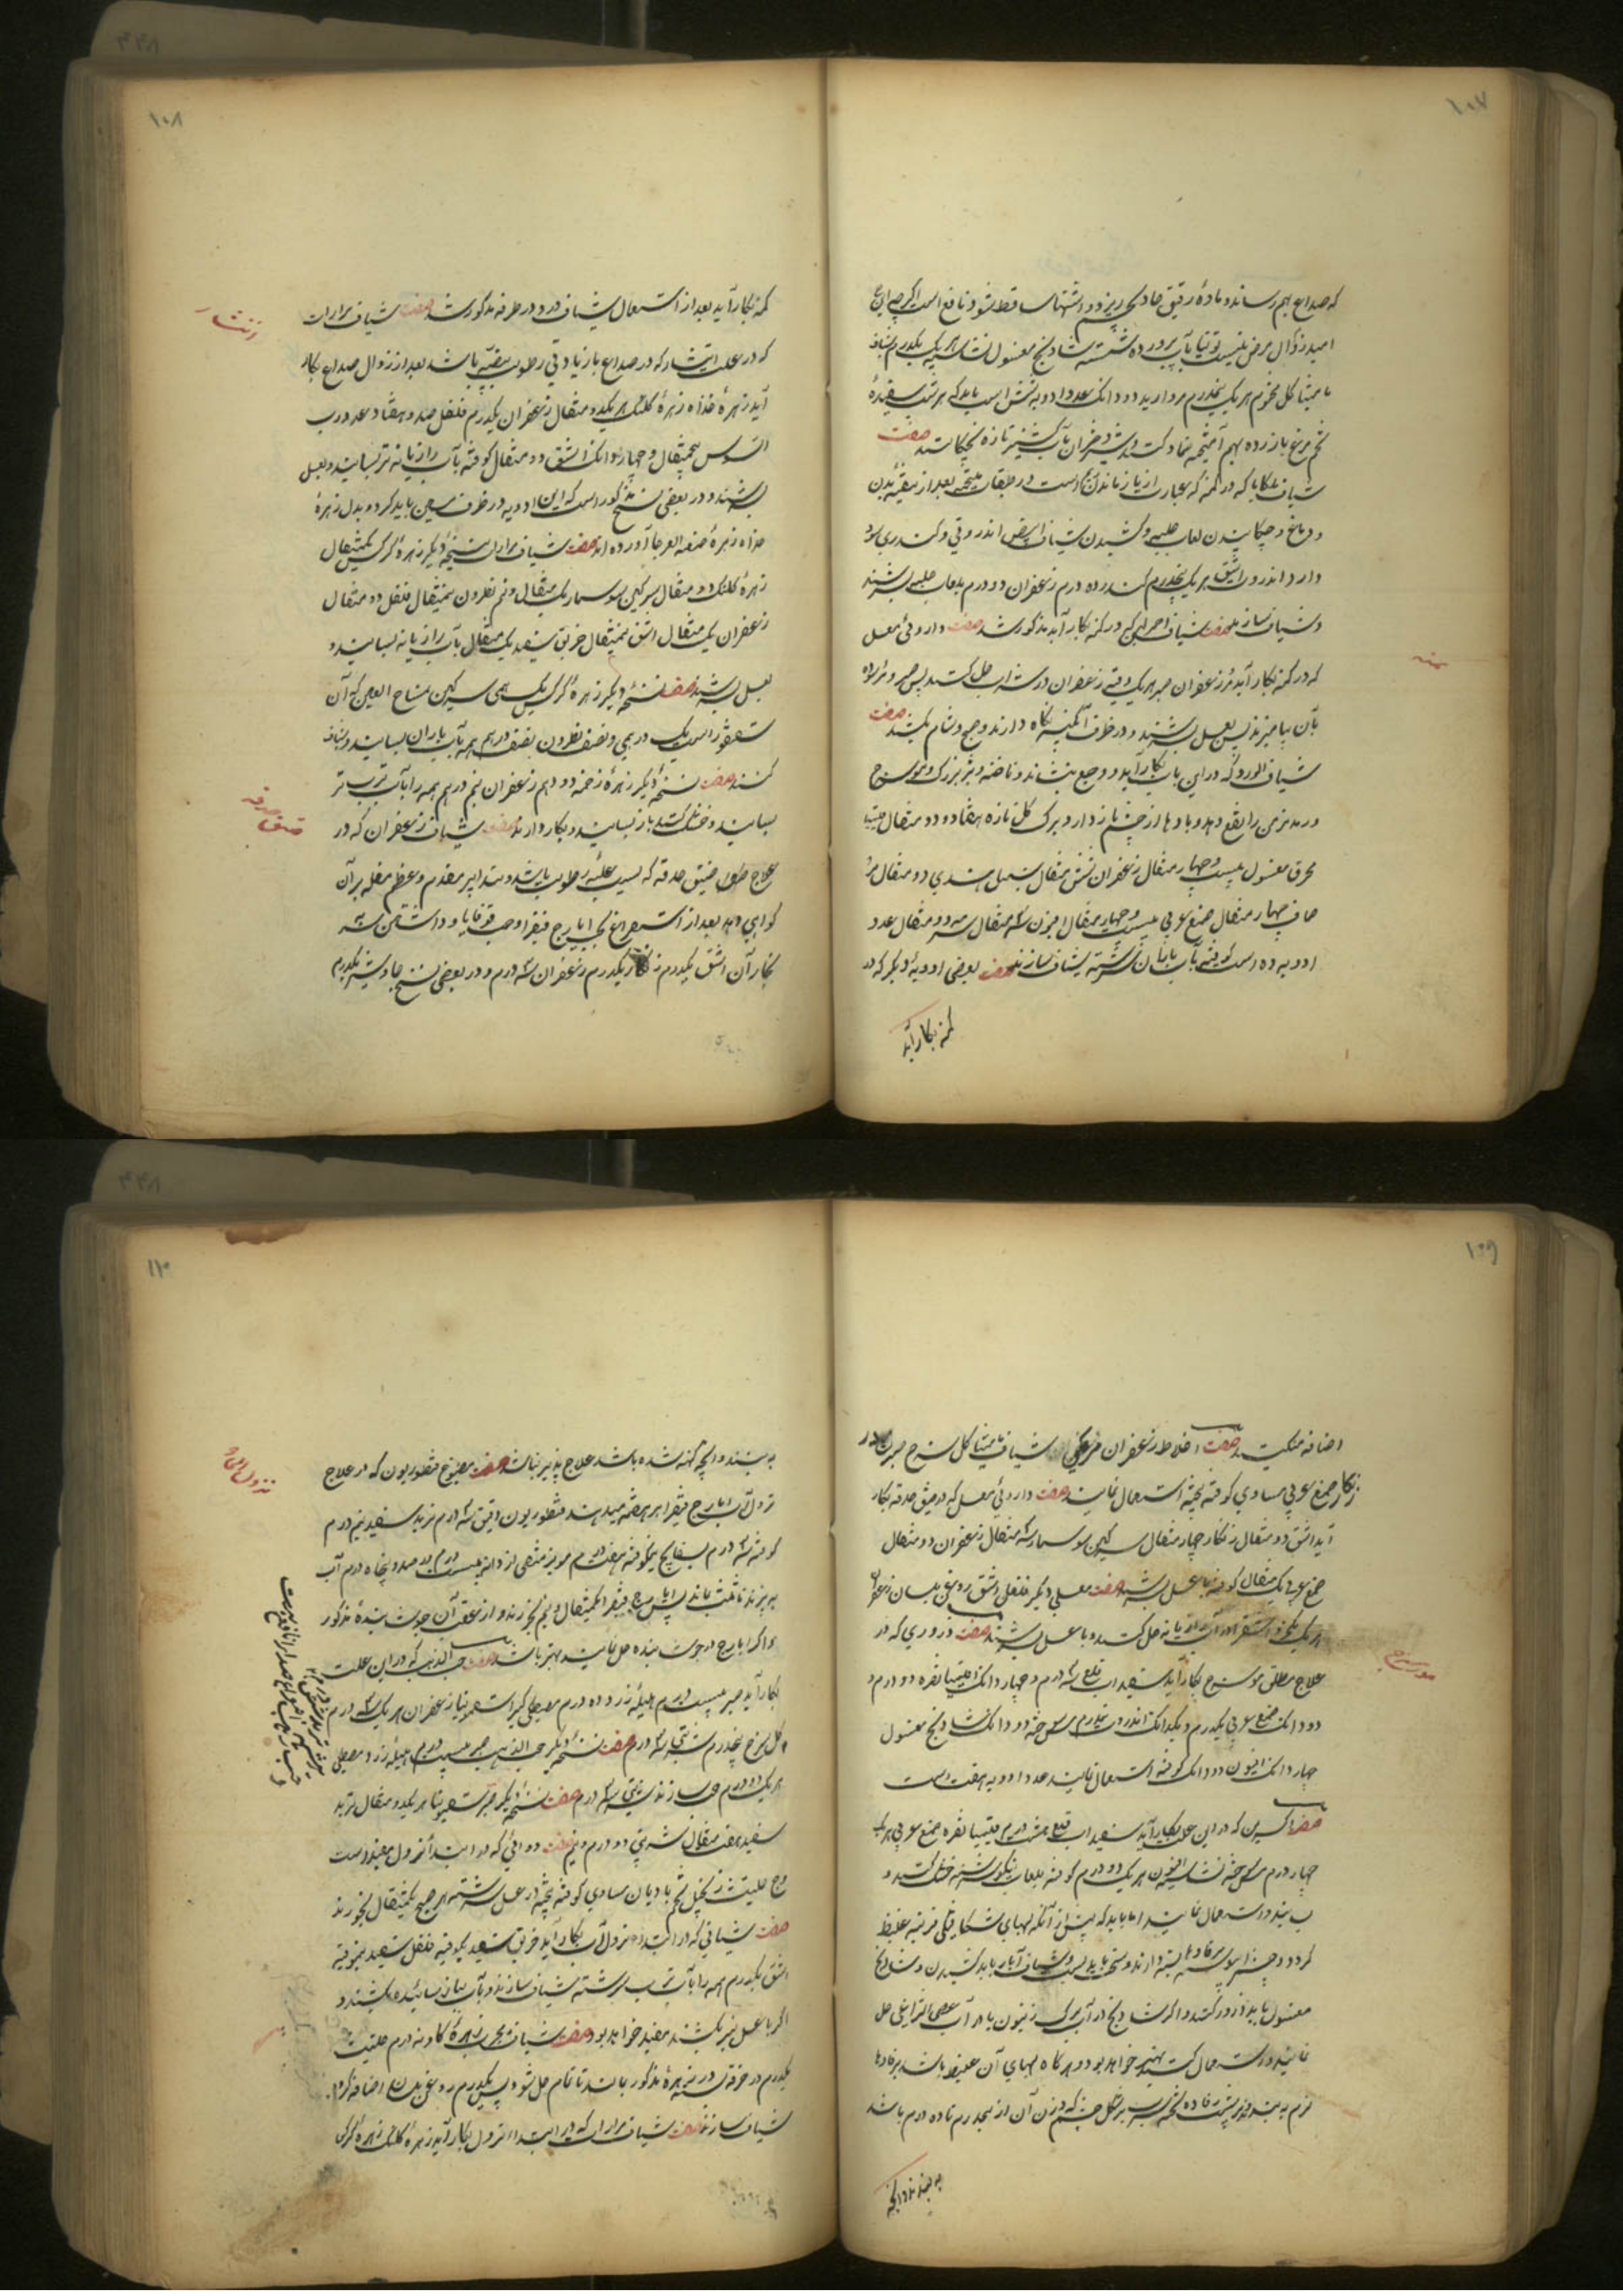 ۱۰۷
که صداع بهم رساند و ماده رقیق حاد بچشم ریزد و اشتها ساقط شود نافع است اگرچه
امید زوال مرض نیست توتیا بآب پرورده شسته شادنج مغسول نشاسته هر یک یکدرم شیاف
مامیثا گل مختوم هر یک نیمدرم مروارید دو دانک عدد ادویه شش است باید که هر شب سفیده
تخم مرغ با زرده بهم آمیخته ضماد کنند و شیر دختران بآب کشنیز تازه بچکانند صفت
شیاف که در کمنه که عبارت از باز ماندن است در طبقات ملتحمه بعد از تنقیه بدن
و دماغ و چکانیدن لعاب حلبه و کشیدن شیاف ابیض اندروتی و کندری سود
دارد انزروت اشق هر یک پنجدرم کندر ده درم زعفران دو درم بلعاب حلبه بسرشند
و شیاف سازند صفت شیاف احمر که در کمنه بکار آید مذکور شد صفت داروئی معسل
کمنه
که در کمنه بکار آید مر زعفران صبر هر یک وقیه زعفران در شراب حل کنند پس صبر و مر سوده
بآن بیامیزند پس بعسل بسرشند و در ظرف آبگینه نگاه دارند و صبح و شام بکشند صفت
شیاف الورد که در این باب بکار آید و وجع بنشاند و ناخنه و بثر بزرگ و مورسرج
و رمد مزمن را نفع دهد و مادها از چشم باز دارد برگ گل تازه هفتاد و دو مثقال
محرق مغسول بیست و چهار مثقال زعفران شش مثقال سنبل هندی دو مثقال مر
صاف چهار مثقال صمغ عربی بیست و چهار مثقال افیون سه مثقال سرمه دو مثقال عدد
ادویه ده است کوفته بآب باران سرشته شیاف سازند صفت بعضی ادویه دیگر که در
کمنه بکار آید
۱۰۸
کمنه بکار آید بعد از استعمال شیاف ورد در طرفه مذکور شد صفت شیاف مرارات
انتشار
که در علت انتشار که در صداع بازیادتی رطوبت بیضیه باشد بعد از زوال صداع بکار
آید زهره زهره کلنگ هر یک دو مثقال زعفران یکدرم فلفل صد و هفتاد عدد رب
السوس پنجمثقال و چهار دانک اشق دو مثقال کوفته بآب رازیانه تر بسایند و بعسل
بسرشند و در بعضی نسخ مذکور است که این ادویه در ظرف مسین باید کرد و بدل زهره
زهره ضبعة العرجا آورده اند صفت شیاف مرارات نسخه دیگر زهره کرکس یکمثقال
زهره کلنگ دو مثقال سرگین سوسمار یک مثقال و نیم نطرون نیمثقال فلفل دو مثقال
زعفران یک مثقال اشق نیمثقال خربق سفید یک مثقال بآب رازیانه بسایند و
بعسل بسرشند صفت نسخه دیگر زهره کرکس یک درهمی سرگین تمساح العین که آن
سقنقور است یک درهمی و نصف نطرون نصف درهم همه بآب باران بسایند و شیاف
کنند صفت نسخه دیگر زهره رخمه دو درهم زعفران نیم درهم همه را بآب ترب تر
ضیق حدقه
بسایند و خشک کنند باز بسایند و بکار دارند صفت شیاف زعفران که در
علاج ضیق حدقه که بسبب غلبه رطوبت باشد و تدابیر مقدم و عظم مقله بر آن
گواهی دهد بعد از استفراغ بحب ایارج فیقرا و حب قوقایا و داشتن سر
بخار آن اشق یکدرم زنگار یکدرم زعفران سه درم و در بعضی نسخ جاوشیر یکدرم
۱۰۹
اضافه میکنند صفت اخلاط زعفران شیاف مامیثا گل سرخ صبر
زنگار صمغ عربی مساوی کوفته بیخته استعمال نمایند صفت داروئی معسل که در ضیق حدقه بکار
آید اشق دو مثقال زنگار چهار مثقال سرگین سوسمار سه مثقال زعفران دو مثقال
صمغ عربی یک مثقال کوفته با عسل بسرشند صفت معسلی دیگر فلفل اشق روغن بلسان زعفران
هر یک یکجزو اشق را در آب رازیانه حل کنند و با عسل بسرشند صفت ذروری که در
مورسرج
علاج مطلق مورسرج بکار آید سفیداب قلع سه درم و چهار دانک اقلیمیا نقره دو درم و
دو دانک صمغ عربی یکدرم و یکدانک انزروت نیمدرم مس سوخته دو دانک شادنج مغسول
چهار دانک افیون دو دانک کوفته استعمال نمایند عدد ادویه هفت است
صفت اکسیرین که در این علت بکار آید سفیداب قلع هشت درم اقلیمیا نقره صمغ عربی هر یک
چهار درم مس سوخته نشاسته افیون هر یک دو درم کوفته بلعاب سرشته خشک کنند و
بسایند و استعمال نمایند اما باید که پیش از آنکه لبهای شکافتگی قرنیه غلیظ
گردد و چشم را پیوسته برفاده بسته دارند و سخت باید بست و شیاف آبار باید کشیدن و شادنج
مغسول باید ذرور کنند و اگر شادنج در آب برگ زیتون یا در آب عصی الراعی حل
نمایند و استعمال کنند بهتر خواهد بود و هرگاه لبهای آن غلیظ باشد برفادها
نرم به بندند و بر پشت رفاده تخته سرب بر شکل چشم که وزن آن از پنجدرم تا ده درم باشد
به بندند و آنچه
۱۱۰
به بندند و آنچه کهنه شده باشد علاج پذیر نباشد صفت مطبوخ قنطوریون که در علاج
نزول آب
نزول آب با ایارج فیقرا بر هضمه میدهند قنطوریون دقیق سه درم تربد سفید نیم درم
کوفته سه درم بسفایج نیمکوفته هفت درم مویز منقی از دانه بیست درم در صد و پنجاه درم آب
بپزند تا ثلث بماند ایارج فیقرا یکمثقال و نیم بخورند و از عقب آن جوشانیده مذکور
و اگر ایارج در جوشانیده حل نمایند بهتر باشد صفت حب الذهب که در این علت
بکار آید صبر بیست درم هلیله زرد ده درم مصطکی کتیرا سقمونیا زعفران هر یک سه درم
گل سرخ پنجدرم شربتی سه درم صفت نسخه دیگر حب الذهب صبر بیست درم هلیله زرد مصطکی
هر یک ده درم حب سازند شربتی سه درم صفت نسخه دیگر صبر سقمونیا هر یک دو مثقال تربد
سفید هفت مثقال شربتی دو درم و نیم صفت دوائی که در ابتداء نزول مفید است
وج حلتیت زنجبیل تخم بادیان مساوی کوفته بیخته در عسل سرشته هر صبح یکمثقال بخورند
صفت شیافی که در ابتداء نزول آب بکار آید خربق سفید یکوقیه فلفل سفید نیموقیه
اشق یکدرم همه را بآب ترب سرشته شیاف سازند و بآب سائیده بکشند و
اگر با عسل نیز بکشند مفید خواهد بود صفت شیاف زهره گاو نه درم حلتیت
یکدرم در خرقه در زهره مذکور بمالند تا تمام حل شود پس یکدرم روغن بلسان اضافه کرده
شیاف سازند صفت شیاف مرارات که در ابتداء نزول بکار آید زهره کلنگ زهره کرکس